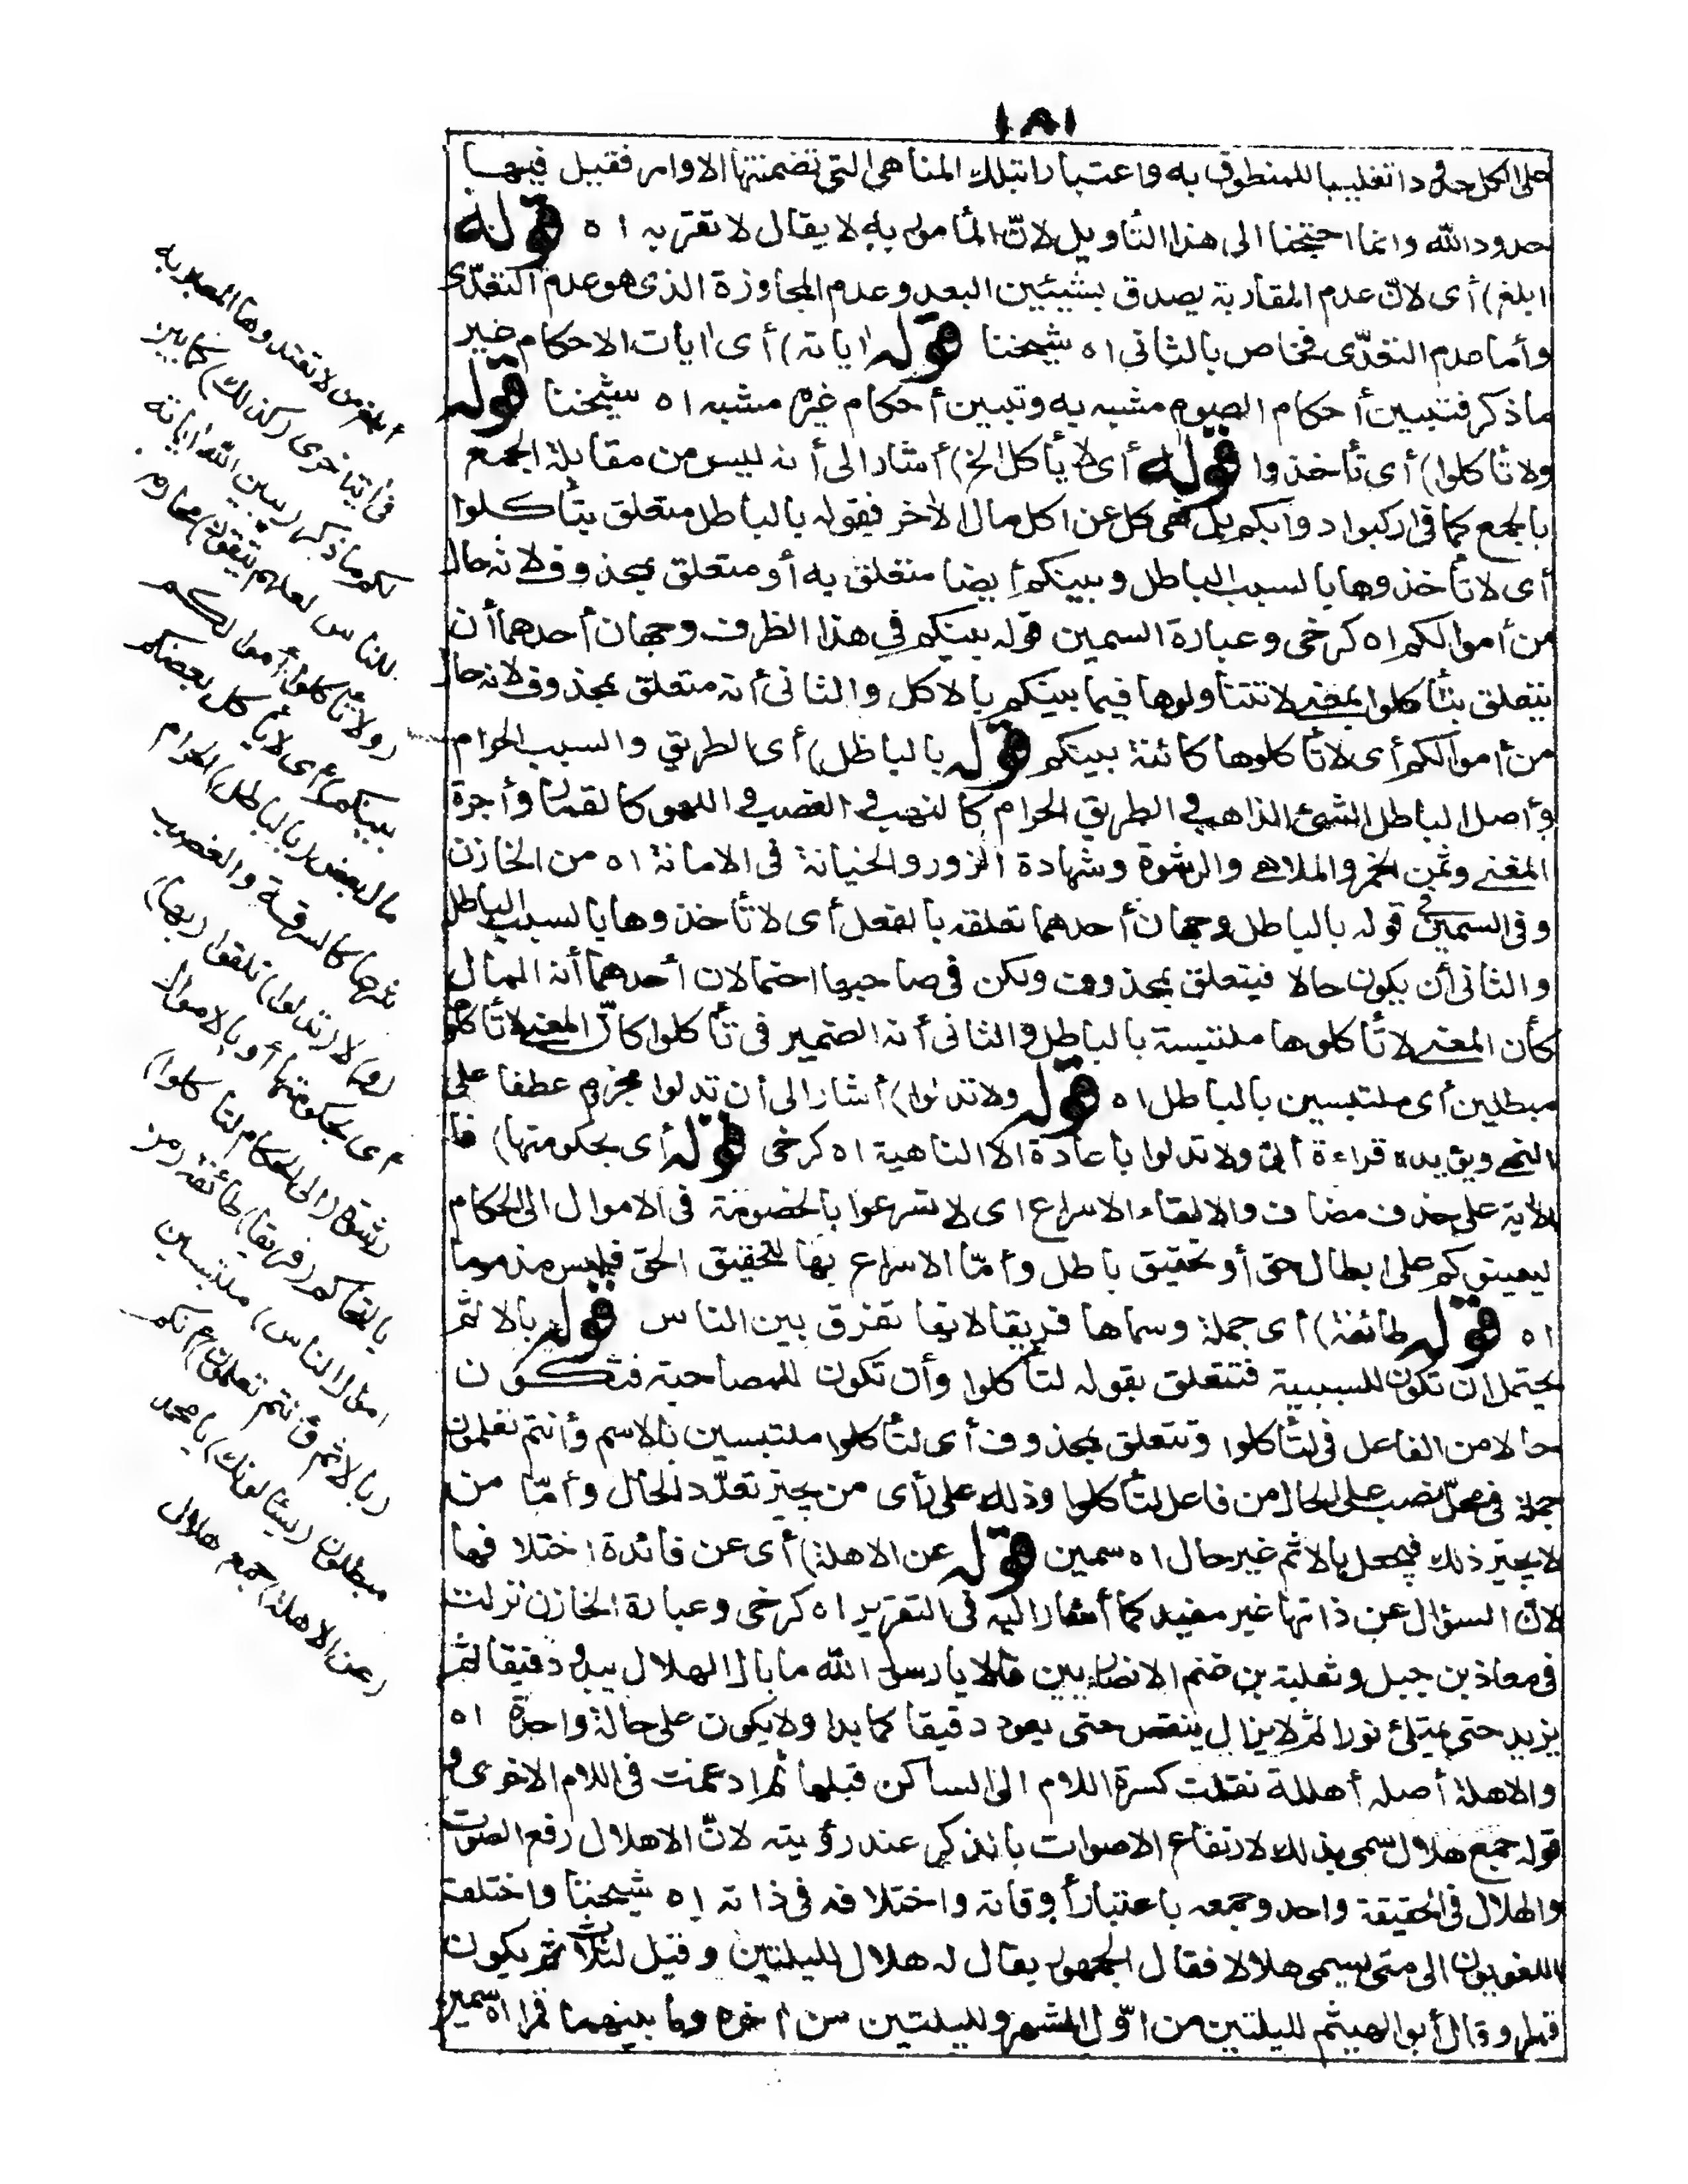 ١٨١
على الكل حدودا تغليبا للمنطوق به واعتبارا بتلك المناهي التي تضمنتها الاوامر فقيل فيها
حدود الله وانما احتجنا الى هذا التأويل لانّ المأمور به لا يقال لا تقربه ا ه قوله
ابلغ) أى لانّ عدم المقاربة يصدق بشيئين البعد وعدم المجاوزة الذى هو عدم التعدّى
وأما عدم التعدّى فخاص بالثانى ا ه شيخنا قوله اياته) أى ايات الاحكام غير
ما ذكر فتبيين أحكام الصوم مشبه به وتبيين أحكام غيره مشبه ا ه شيخنا قوله
ولا تأكلوا) أى تأخذوا قوله أى لا يأكل الخ) أشار الى أنه ليس من مقابلة الجمع
بالجمع كما فى اركبوا دوابكم بل نهى كل عن اكل مال الآخر فقوله بالباطل متعلق بتأكلوا
أى لا تأخذوها بالسبب الباطل وبينكم أيضا متعلق به أو متعلق بمحذوف لانه حال
من أموالكم ا ه كرخى وعبارة السمين قوله بينكم فى هذا الظرف وجهان أحدهما أن
يتعلق بتأكلوا بمعنى لا تتناولوها فيما بينكم بالاكل والثانى أنه متعلق بمحذوف لانه حال
من أموالكم أى لا تأكلوها كائنة بينكم قوله بالباطل) أى الطريق والسبب الحرام
وأصل الباطل الشئ الذاهب فى الطريق الحرام كالنهب فى الغصب فى اللهو كالقمار وأجرة
المغنى وثمن الخمر والملاهى والرشوة وشهادة الزور والخيانة فى الامانة ا ه من الخازن
وفى السمين قوله بالباطل وجهان أحدهما تعلقه بالفعل أى لا تأخذوها بالسبب الباطل
والثانى أن يكون حالا فيتعلق بمحذوف ولكن فى صاحبها احتمالان أحدهما أنه المال
كأن المعنى لا تأكلوها ملتبسة بالباطل والثانى أنه الضمير فى تأكلوا كانّ المعنى لا تأكلوها
مبطلين أى ملتبسين بالباطل ا ه قوله ولا تدلوا) أشار الى أن تدلوا مجزوم عطفا على
النهى ويؤيده قراءة أبىّ ولا تدلوا باعادة لا الناهية ا ه كرخى قوله أى بحكومتها) فا
لاية على حذف مضاف والالقاء الاسراع اى لا تسرعوا بالخصومة فى الاموال الى الحكام
ليعينوكم على ابطال حق أو تحقيق باطل وأمّا الاسراع بها لتحقيق الحق فليس مذموما
ا ه قوله طائفة) أى جملة وسماها فريقا لانها تفرق بين الناس قوله بالاثم
يحتمل ان تكون للسببية فتتعلق بقوله لتأكلوا وأن تكون للمصاحبة فتكون
حالا من الفاعل فى لتأكلوا وتتعلق بمحذوف أى لتأكلوا ملتبسين بالاسم وأنتم تعلمون
جملة فى محلّ نصب على الحال من فاعل لتأكلوا وذلك على رأى من يجيز تعدّد الحال وأمّا من
لا يجيز ذلك فيجعل بالاثم غير حال ا ه سمين قوله عن الاهلة) أى عن فائدة اختلافها
لانّ السؤال عن ذاتها غير مفيد كما أشار اليه فى التقرير ا ه كرخى وعبارة الخازن نزلت
فى معاذ بن جبل وثعلبة بن غنم الانصاريين قالا يا رسول الله ما بال الهلال يبدو دقيقا ثم
يزيد حتى يمتلئ نورا ثم لا يزال ينقص حتى يعود دقيقا كما بدا ولا يكون على حالة واحدة ا ه
والاهلة أصله أهللة نقلت كسرة اللام الى الساكن قبلها ثم ادغمت فى اللام الاخرى و
قوله جمع هلال سمى بذلك لارتفاع الاصوات بالذكر عند رؤيته لانّ الاهلال رفع الصوت
والهلال فى الحقيقة واحد وجمعه باعتبار أوقاته واختلافه فى ذاته ا ه شيخنا واختلف
اللغويون الى متى يسمى هلالا فقال الجمهور يقال له هلال لليلتين وقيل لثلاث ثم يكون
قمرا وقال أبو الهيثم لليلتين من اوّل الشهر ولليلتين من اخره وما بينهما قمرا ا ه سمين
أبلغ من لا تعتدوها المعبر به
فى أية اخرى (كذلك) كما بين
لكم ما ذكر (يبين الله اياته
للناس لعلهم يتقون) محارمه
(ولا تأكلوا أموالكم
بينكم) أى لا يأكل بعضكم
مال بعض (بالباطل) الحرام
شرعا كالسرقة والغصب
(و) لا (تدلوا) تلقوا (بها)
أى بحكومتها أو بالاموال
رشوة (الى الحكام لتأكلوا)
بالتحاكم (فريقا) طائفة (من
اموال الناس) ملتبسين
(بالاثم وأنتم تعلمون) أنكم
مبطلون (يسئلونك) يا محمد
(عن الاهلة) جمع هلال